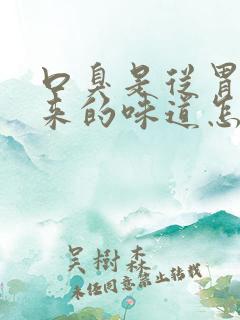 口臭是从胃
来的味道怎
吴樹森
未经同意禁止转载